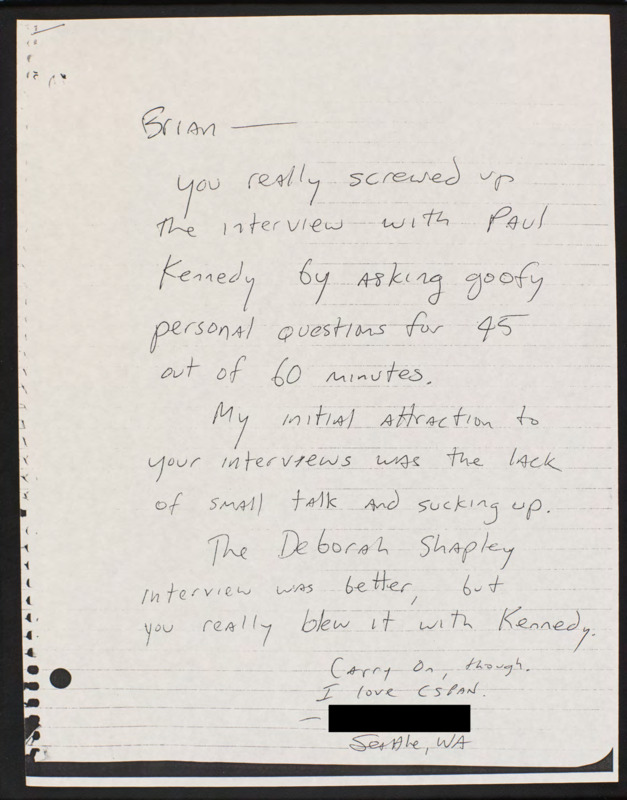 Brian —
you really screwed up
the interview with Paul
Kennedy by asking goofy
personal questions for 45
out of 60 minutes.
My initial attraction to
your interviews was the lack
of small talk and sucking up.
The Deborah Shapley
interview was better, but
you really blew it with Kennedy.
Carry On, though.
I love CSPAN.
—
Seattle, WA